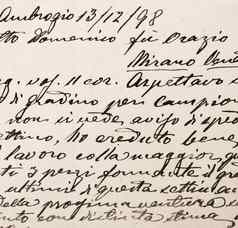 Ambrogio 13/12/98
Domenico fu Orazio
Mirano Vene
vos. 11 cor. Aspettavo
di gradino per campio
non si vede, aviso di sped
ho creduto bene
lavoro colla maggior
3 pezzi formante il gr
ultimi di questa settima
della prossima ventura
con distinta stima